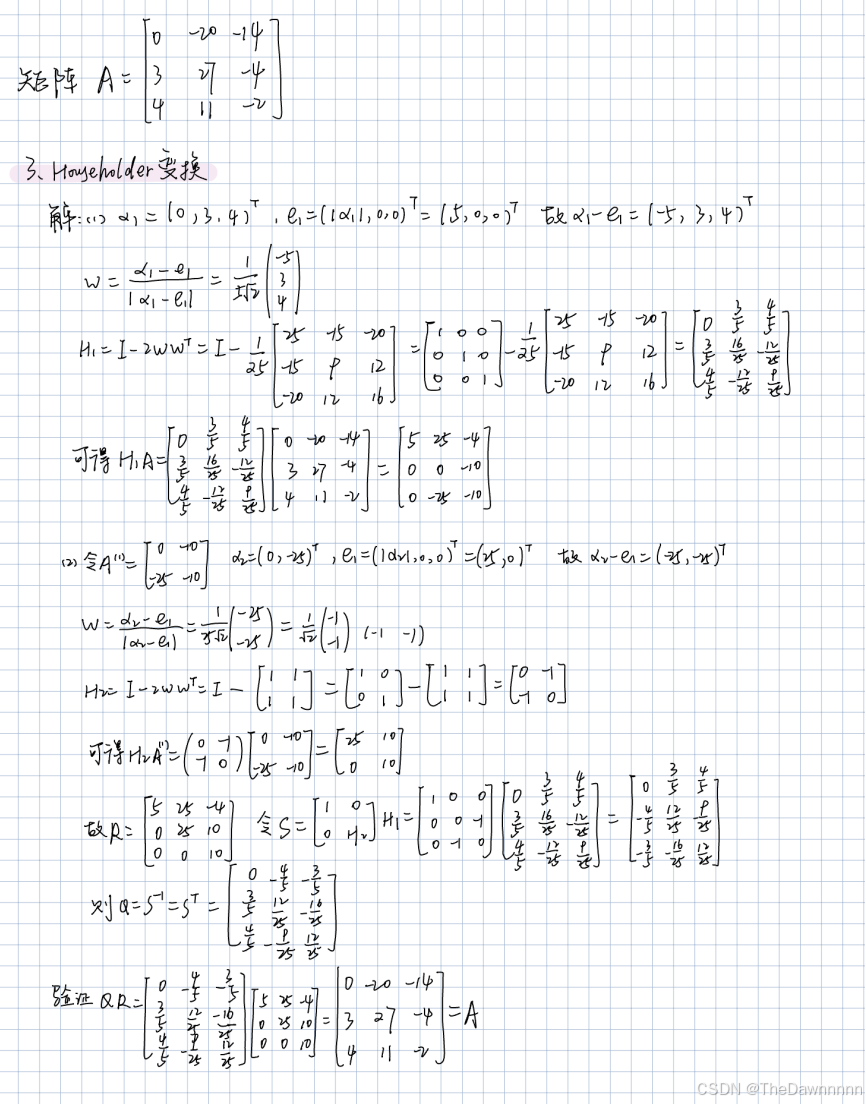 矩阵 A = [0 -20 -14; 3 27 -4; 4 11 -2]
3、Householder 变换
解:(1) α₁ = (0, 3, 4)ᵀ , e₁ = (|α₁|, 0, 0)ᵀ = (5, 0, 0)ᵀ 故 α₁-e₁ = (-5, 3, 4)ᵀ
W = (α₁-e₁)/|α₁-e₁| = 1/(5√2) (-5; 3; 4)
H₁ = I-2WWᵀ = I - 1/25 [25 -15 -20; -15 9 12; -20 12 16] = [1 0 0; 0 1 0; 0 0 1] - 1/25 [25 -15 -20; -15 9 12; -20 12 16] = [0 3/5 4/5; 3/5 16/25 -12/25; 4/5 -12/25 9/25]
可得 H₁A = [0 3/5 4/5; 3/5 16/25 -12/25; 4/5 -12/25 9/25] [0 -20 -14; 3 27 -4; 4 11 -2] = [5 25 -4; 0 0 -10; 0 -25 -10]
(2) 令A⁽¹⁾ = [0 -10; -25 -10] α₂ = (0, -25)ᵀ , e₁ = (|α₂|, 0, 0)ᵀ = (25, 0)ᵀ 故 α₂-e₁ = (-25, -25)ᵀ
W = (α₂-e₁)/|α₂-e₁| = 1/(25√2) (-25; -25) = 1/√2 (-1; -1) (-1 -1)
H₂ = I-2WWᵀ = I - [1 1; 1 1] = [1 0; 0 1] - [1 1; 1 1] = [0 -1; -1 0]
可得 H₂A⁽¹⁾ = (0 -1; -1 0) [0 -10; -25 -10] = [25 10; 0 10]
故R = [5 25 -4; 0 25 10; 0 0 10] 令 S = [1 0; 0 H₂] H₁ = [1 0 0; 0 0 -1; 0 -1 0] [0 3/5 4/5; 3/5 16/25 -12/25; 4/5 -12/25 9/25] = [0 3/5 4/5; -4/5 12/25 -9/25; -3/5 -16/25 12/25]
则 Q = S⁻¹ = Sᵀ = [0 -4/5 -3/5; 3/5 12/25 -16/25; 4/5 -9/25 12/25]
验证 QR = [0 -4/5 -3/5; 3/5 12/25 -16/25; 4/5 -9/25 12/25] [5 25 -4; 0 25 10; 0 0 10] = [0 -20 -14; 3 27 -4; 4 11 -2] = A
CSDN @TheDawnnnnn